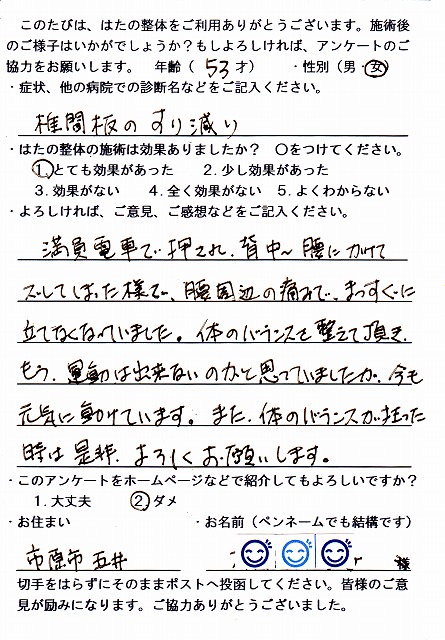 このたびは、はたの整体をご利用ありがとうございます。施術後
のご様子はいかがでしょうか？もしよろしければ、アンケートのご
協力をお願いします。 年齢（ 53 才） ・性別（男・女）
・症状、他の病院での診断名などをご記入ください。
椎間板のすり減り
・はたの整体の施術は効果ありましたか？ 〇をつけてください。
1.とても効果があった 2.少し効果があった
3.効果がない 4.全く効果がない 5.よくわからない
・よろしければ、ご意見、ご感想などをご記入ください。
満員電車で押され、背中〜腰にかけて
ズレてしまった様で、腰周辺の痛みで、まっすぐに
立てなくなっていました。体のバランスを整えて頂き、
もう、運動は出来ないのかと思っていましたが、今も
元気に動けています。また、体のバランスが狂った
時は是非、よろしくお願いします。
・このアンケートをホームページなどで紹介してもよろしいですか？
1.大丈夫 2.ダメ
・お住まい ・お名前（ペンネームでも結構です）
市原市 五井 様
切手をはらずにそのままポストへ投函してください。皆様のご意
見が励みになります。ご協力ありがとうございました。